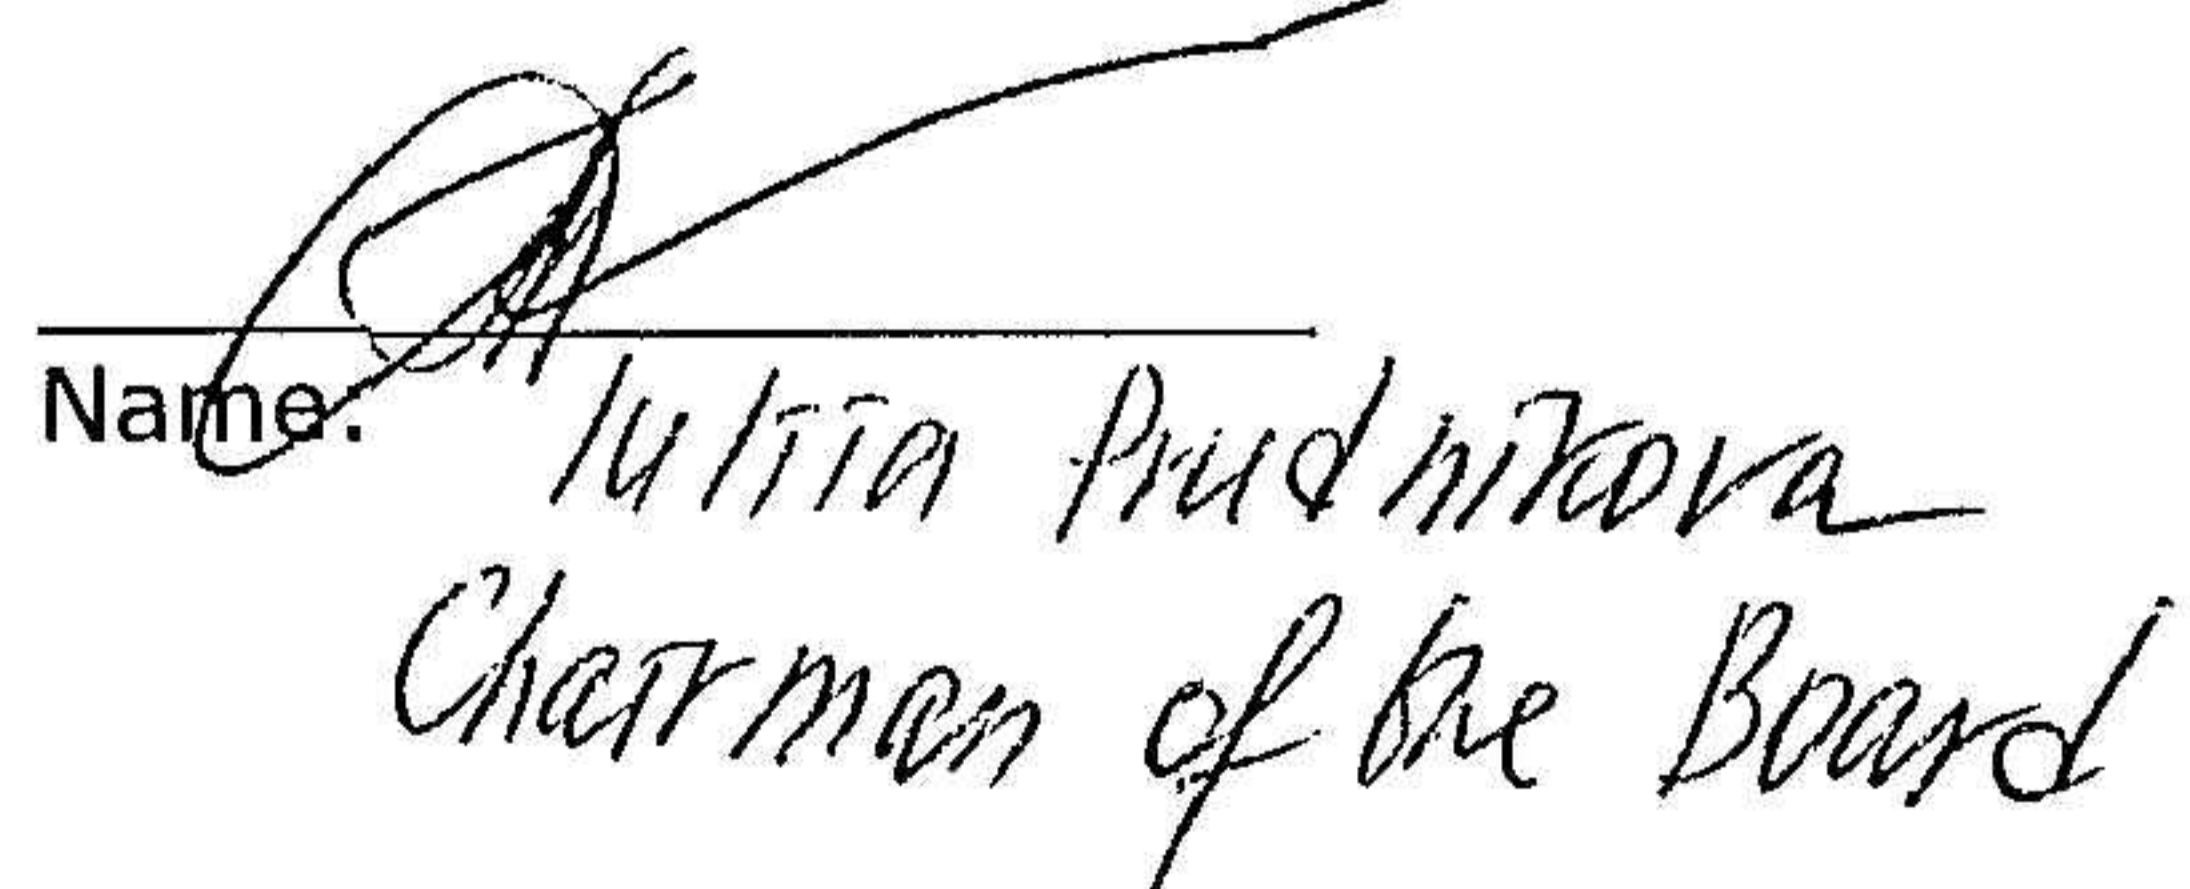 Name: Iuliia Prudnikova
Chairman of the Board